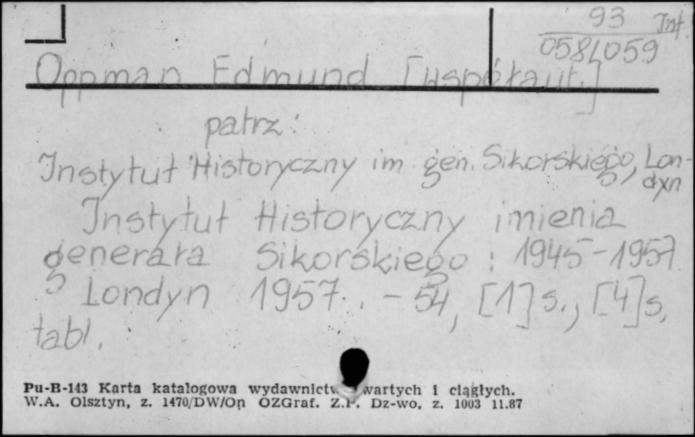 93 Inf.
058/059
Oppman Edmund [współaut.]
patrz:
Instytut Historyczny im gen. Sikorskiego, Lon-
dyn
Instytut Historyczny imienia
generała Sikorskiego : 1945-1957
Londyn 1957. . - 54, [1] s., [4] s.
tabl.
Pu-B-143 Karta katalogowa wydawnictw zwartych i ciągłych.
W.A. Olsztyn, z. 1470/DW/Op OZGraf. Z.P. Dz-wo, z. 1003 11.87